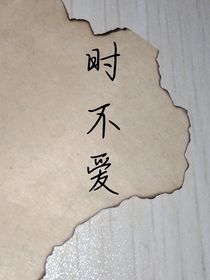 时不爱